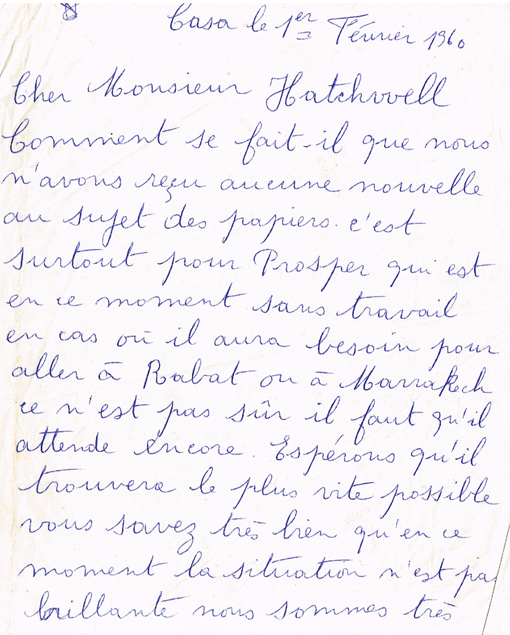 Casa le 1er Février 1960
Cher Monsieur Hatchwell
Comment se fait-il que nous
n'avons reçu aucune nouvelle
au sujet des papiers. c'est
surtout pour Prosper qui est
en ce moment sans travail
en cas où il aura besoin pour
aller à Rabat ou à Marrakech
ce n'est pas sûr il faut qu'il
attende encore. Espérons qu'il
trouvera le plus vite possible
vous savez très bien qu'en ce
moment la situation n'est pas
brillante nous sommes très